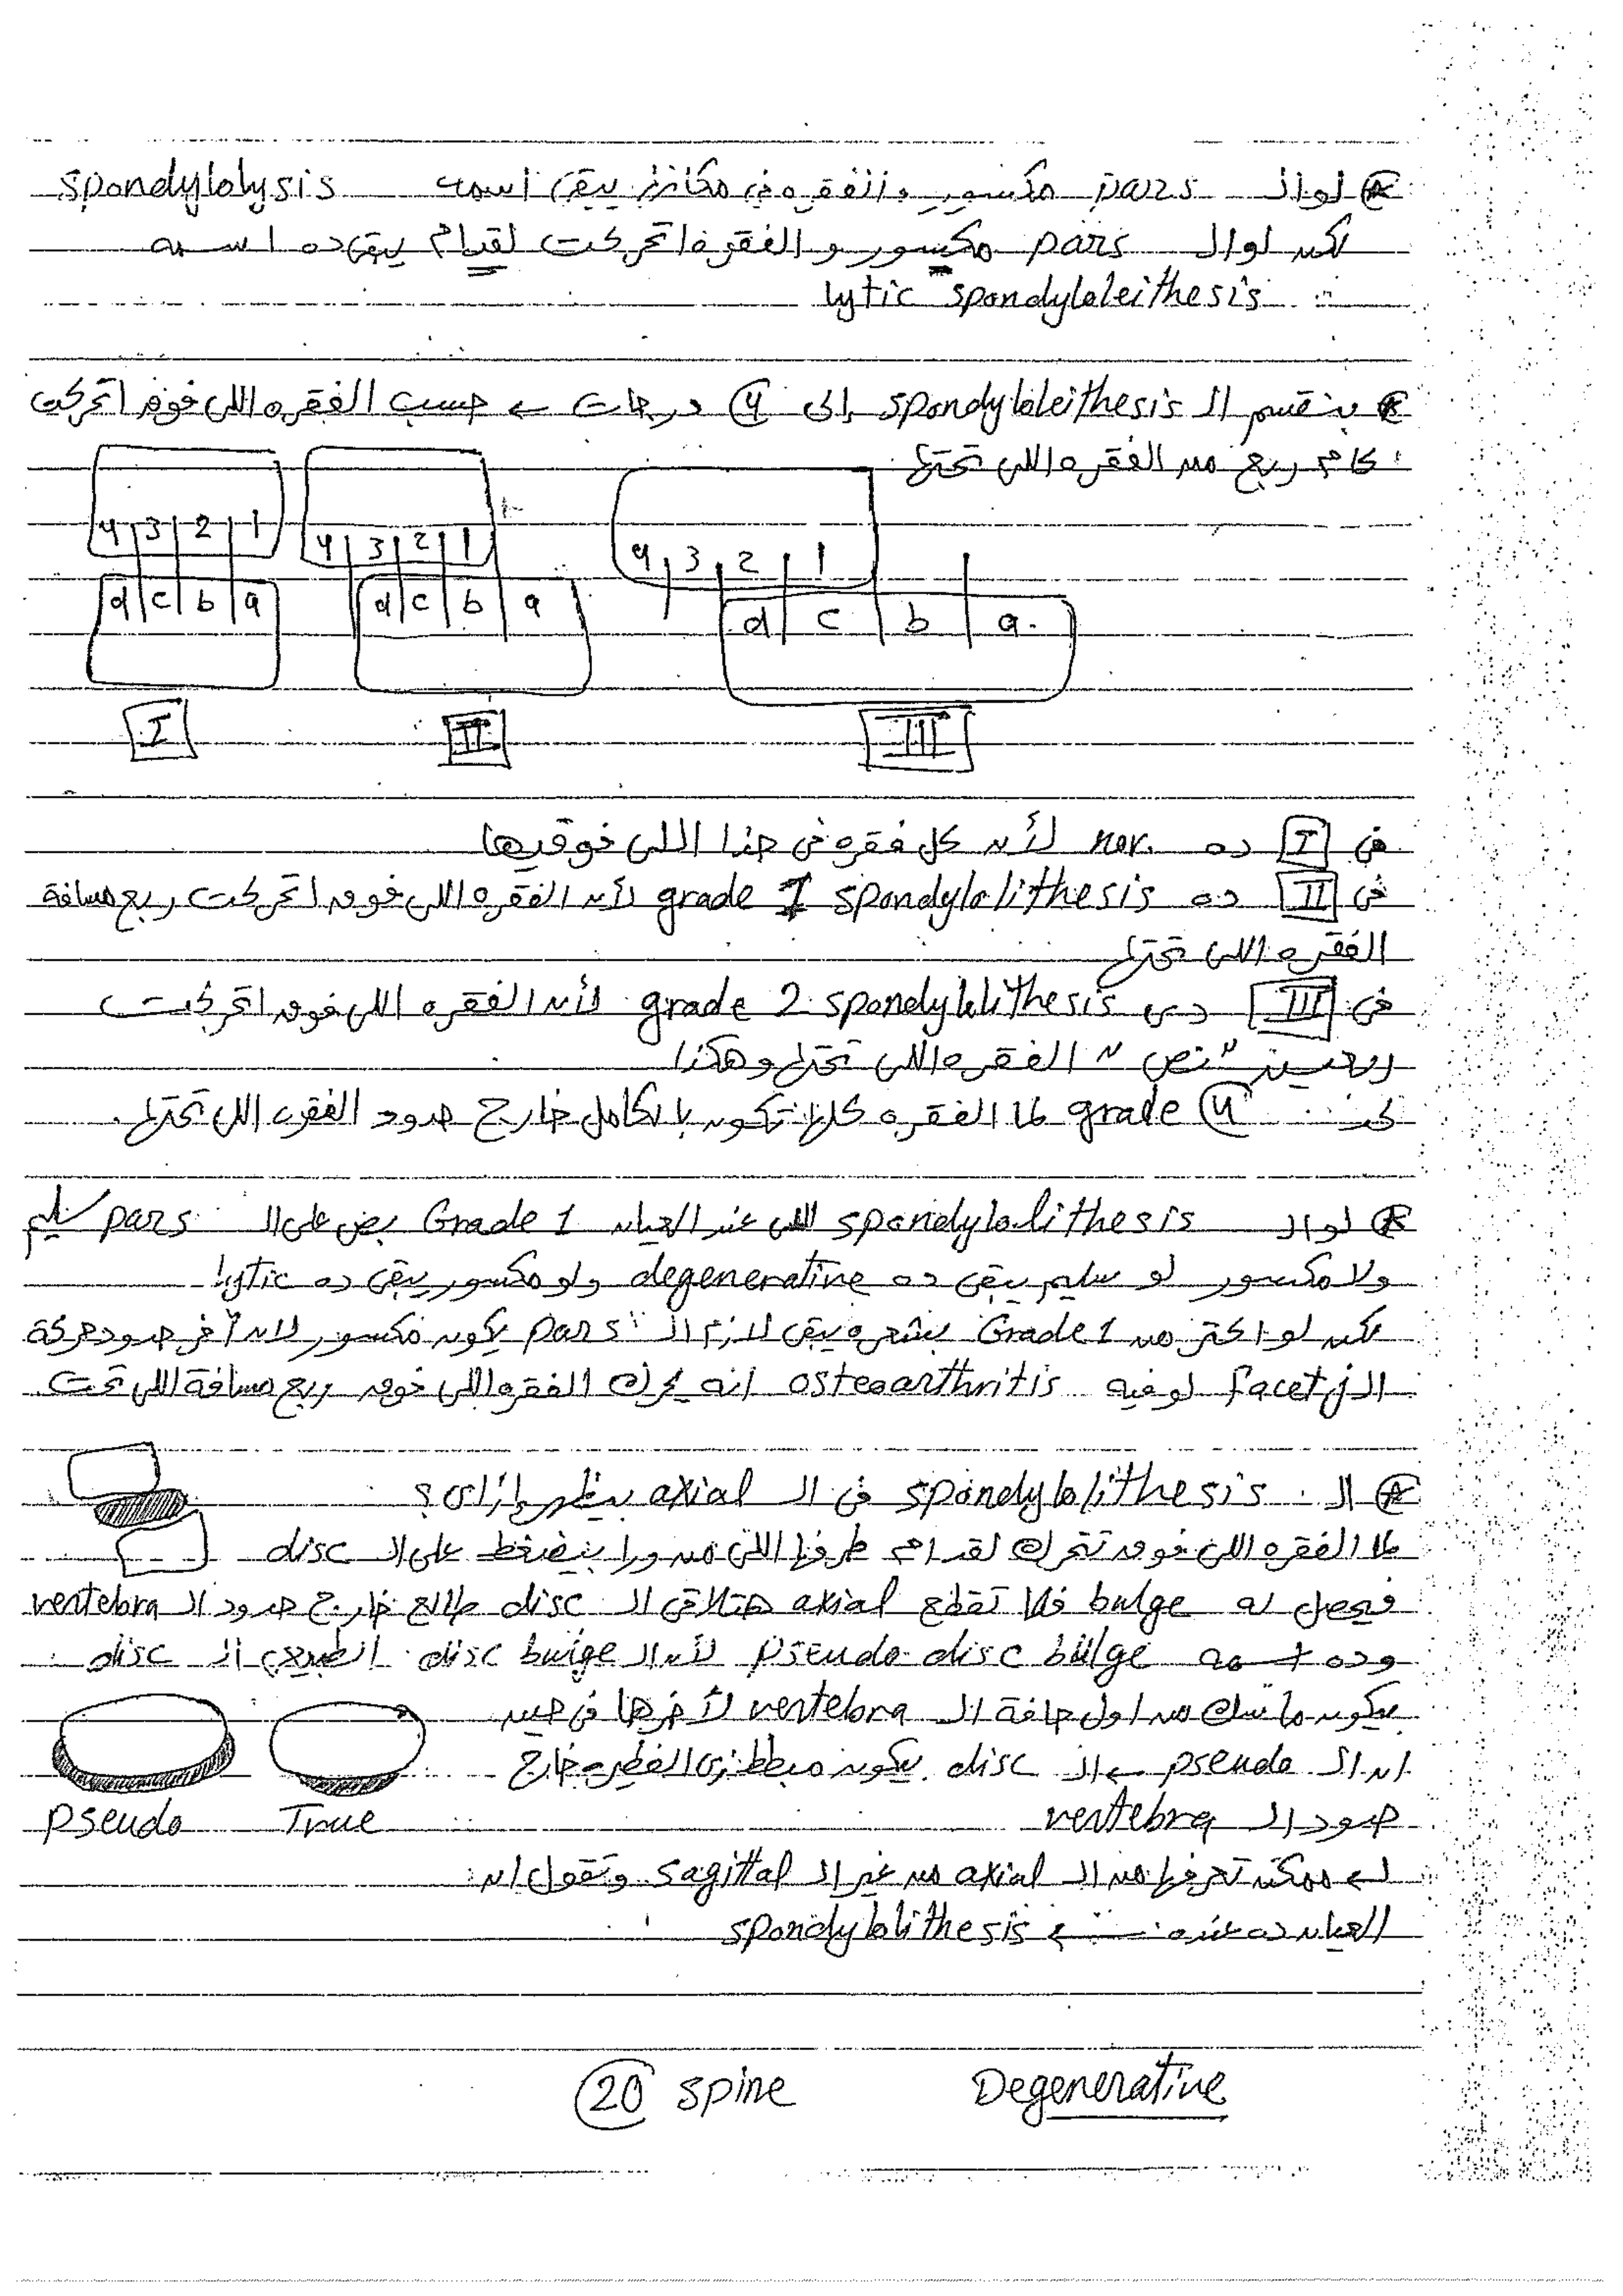 ⊛ لو ال pars مكسور والفقره في مكانها يبقى اسمه spondylolysis
لكن لو ال pars مكسور و الفقرة اتحركت لقدام يبقى ده اسمه
lytic spondyloleithesis
⊛ بنقسم ال spondyloleithesis إلى ④ درجات ← حسب الفقره اللى فوق اتحركت
كام ربع من الفقره اللى تحتها
4 3 2 1 4 3 2 1 4 3 2 1
d c b a d c b a d c b a
I II III
فى I ده nor. لأن كل فقره فى حذا اللى فوقيها
فى II ده grade I spondylolithesis لأن الفقره اللى فوق اتحركت ربع مسافة
الفقره اللى تحتها
فى III دى grade 2 spondylolithesis لأن الفقره اللى فوق اتحركت
ربعين "نص" الفقره اللى تحتها وهكذا
grade ④ لما الفقره كلها تكون بالكامل خارج حدود الفقره اللى تحتها.
⊛ لو ال spondylolithesis اللى عند العيان Grade 1 بص على ال pars سليم
ولا مكسور لو سليم يبقى ده degenerative ولو مكسور يبقى ده lytic
لكن لو اكتر من Grade 1 يبقى لازم ال pars يكون مكسور لان آخر حدود حركة
ال facet j لو فيه osteoarthritis انه يحرك الفقره اللى فوق ربع مسافة اللى تحت
⊛ ال spondylolithesis فى ال axial بيظهر إزاى؟
لما الفقره اللى فوق تتحرك لقدام طرفها اللى من ورا بيضغط على ال disc
فيحصل له bulge فلما تقطع axial هتلاقى ال disc طالع خارج حدود ال vertebra
وده اسمه pseudo disc bulge لأن ال disc bulge الطبيعى ال disc
بيكون ماسك من اول حافة ال vertebra لأخرها فى حين
ان ال pseudo ← ال disc بيكون مبطط زى الفطيره خارج
حدود ال vertebra
Pseudo True
ممكن تعرفها من ال axial من غير ال sagittal وتقول ان
العيان ده عنده ← spondylolithesis
⑳ spine Degenerative